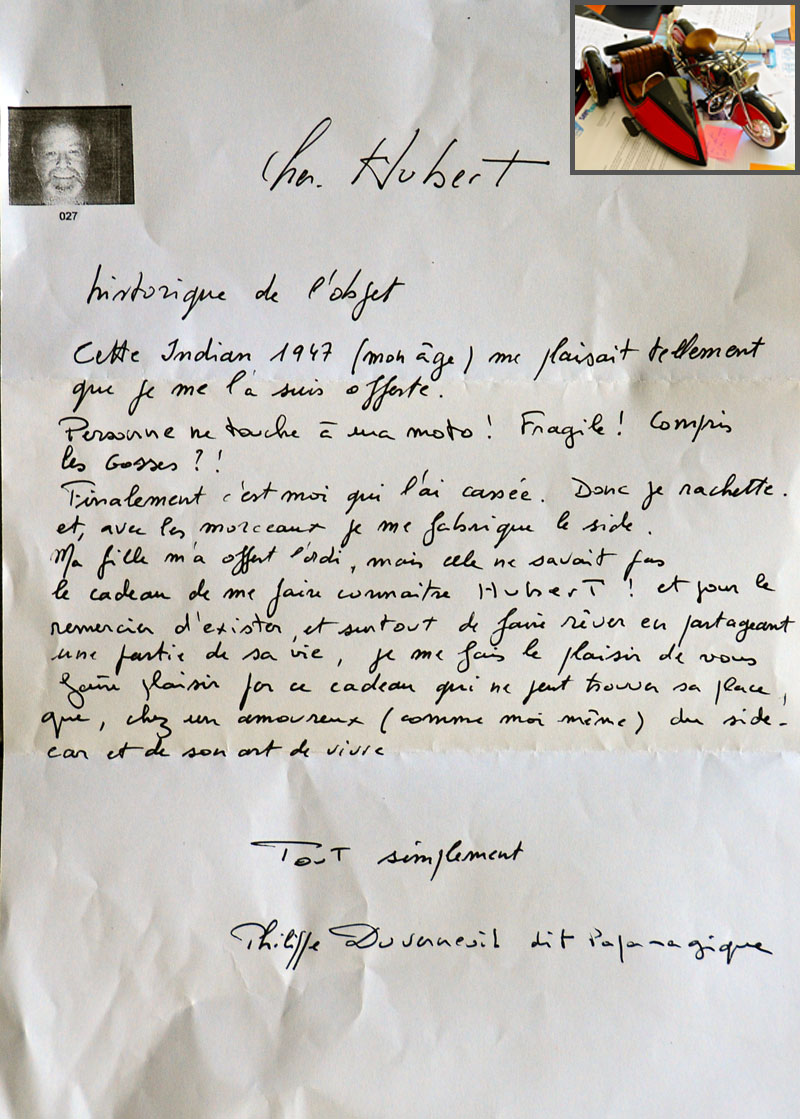 Cher Hubert
027
historique de l'objet
Cette Indian 1947 (mon âge) me plaisait tellement
que je me l'a suis offerte.
Personne ne touche à ma moto ! Fragile ! Compris
les Gosses ? !
Finalement c'est moi qui l'ai cassée. Donc je rachette.
et, avec les morceaux je me fabrique le side.
Ma fille m'a offert l'ordi, mais elle ne savait pas
le cadeau de me faire connaitre HuberT ! et pour le
remercier d'exister, et surtout de faire rêver en partageant
une partie de sa vie, je me fais le plaisir de vous
faire plaisir par ce cadeau qui ne peut trouver sa place,
que, chez un amoureux (comme moi même) du side-
car et de son art de vivre
Tout simplement
Philippe Duverneuil dit Papamagique